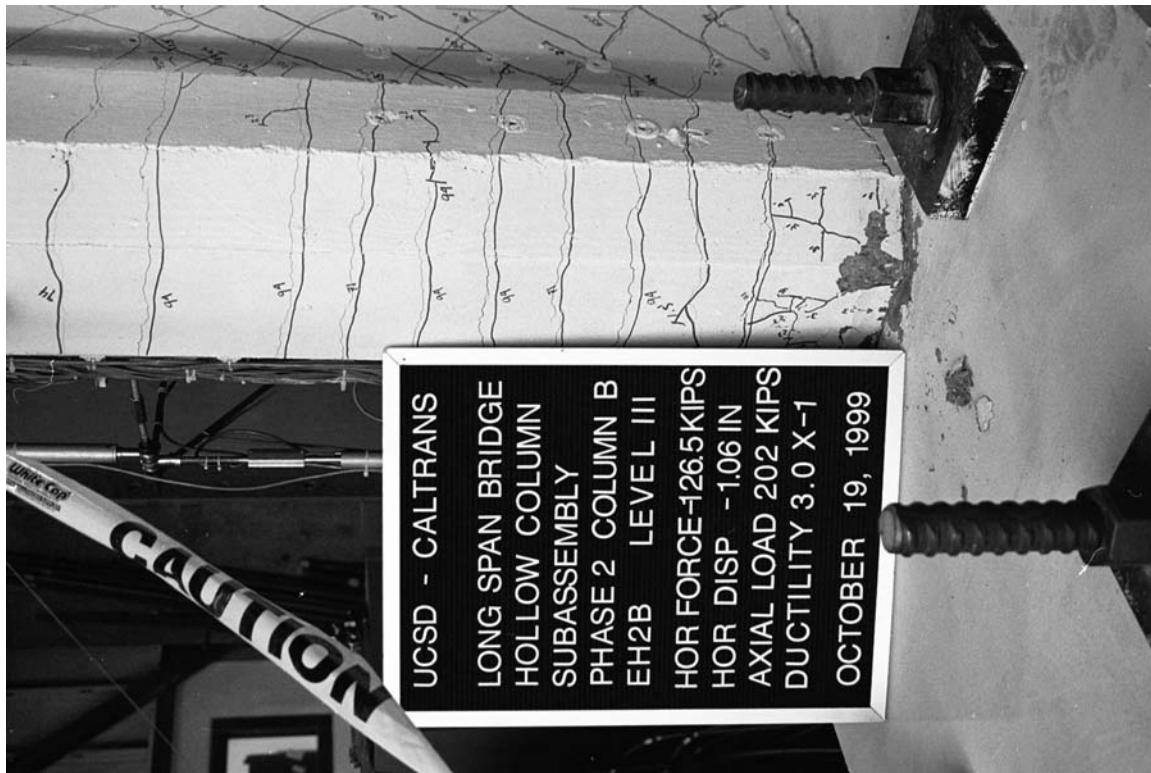 UCSD - CALTRANS
LONG SPAN BRIDGE
HOLLOW COLUMN
SUBASSEMBLY
PHASE 2 COLUMN B
EH2B LEVEL III
HOR FORCE-126.5 KIPS
HOR DISP -1.06 IN
AXIAL LOAD 202 KIPS
DUCTILITY 3.0 X-1
OCTOBER 19, 1999
White Cap
CAUTION